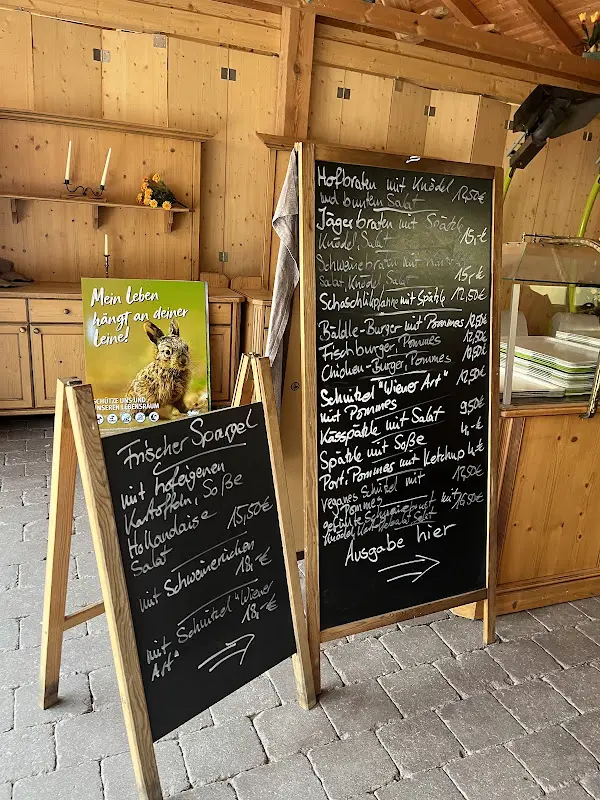 Mein Leben
hängt an deiner
Leine!
SCHÜTZE UNS UND
UNSEREN LEBENSRAUM
Frischer Spargel
mit hofeigenen
Kartoffeln, Soße
Hollandaise
Salat 15,50€
mit Schweinerücken
18,-€
mit Schnitzel "Wiener
Art" 18,-€
Hofbraten mit Knödel 12,50€
und buntem Salat
Jägerbraten mit Spätzle
Knödel, Salat 15,-€
Schweinebraten mit
Salat, Knödel, Salat 15,-€
Schaschlikpfanne mit Spätzle 12,50€
Bädle-Burger mit Pommes 12,50€
Fischburger, Pommes
Chicken-Burger, Pommes
Schnitzel "Wiener Art" 12,50€
mit Pommes
Kässpätzle mit Salat 9,50€
Spätzle mit Soße 4,-€
Port. Pommes mit Ketchup 4,-€
veganes Schnitzel mit
Pommes
gefüllte mit
Knödel, Salat
Ausgabe hier